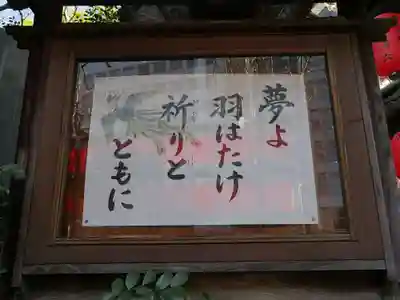 夢よ
羽はたけ
祈りと
ともに